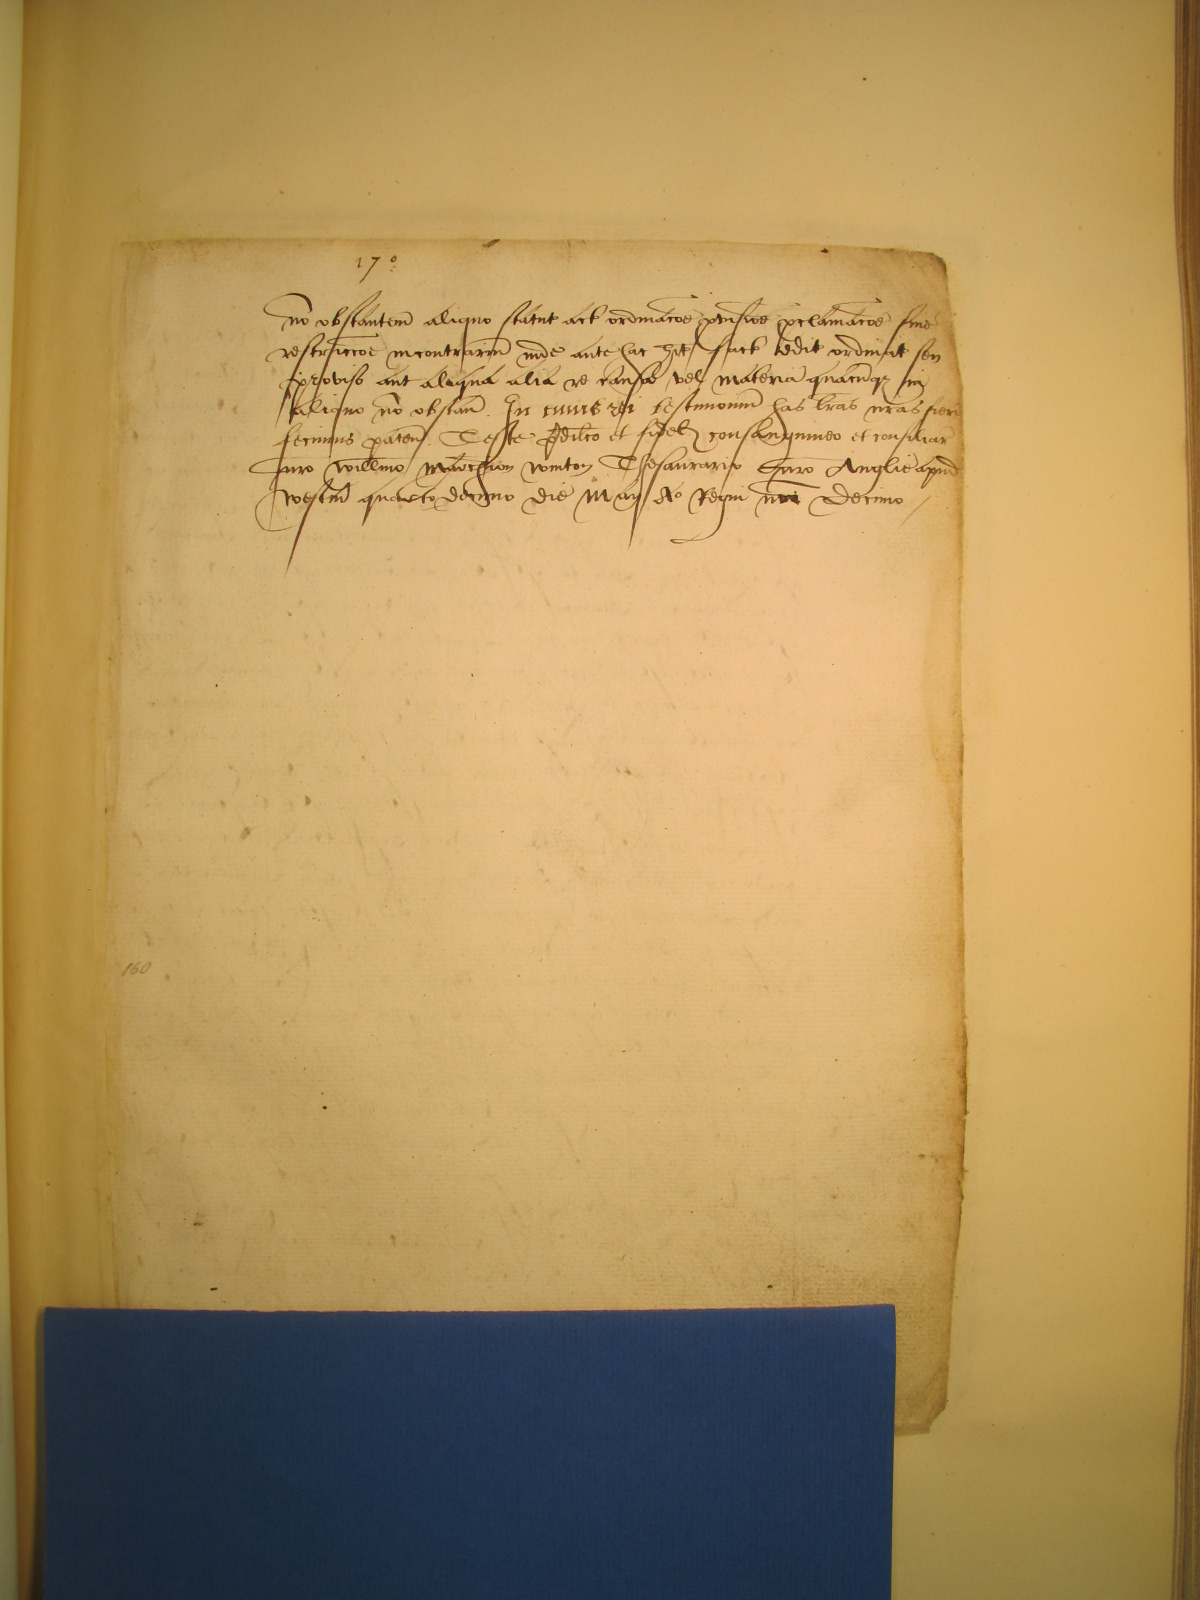 17º
nō obstantem̄ aliquo statut act ordinac̄oe p̱visioe p̱clamac̄oe sine
restricc̄oe incontrariu̅ inde ante hac h̄it fact edit ordinat seu
proviso aut aliqua alia re causa vel materia quacu̅q̱ in
aliquo nō obstan̄. In cuius rei testimoniu̅ has l̄ras n̄ras fieri
fecimus paten̄. Teste p̱dilc̄o et fidel consanguineo et consiliar
n̄ro Will̄mo Marchion Winton Thesaurario n̄ro Anglie apud
Westm̄ quarto decimo die Maij Aº Regni n̄ri Decimo
160